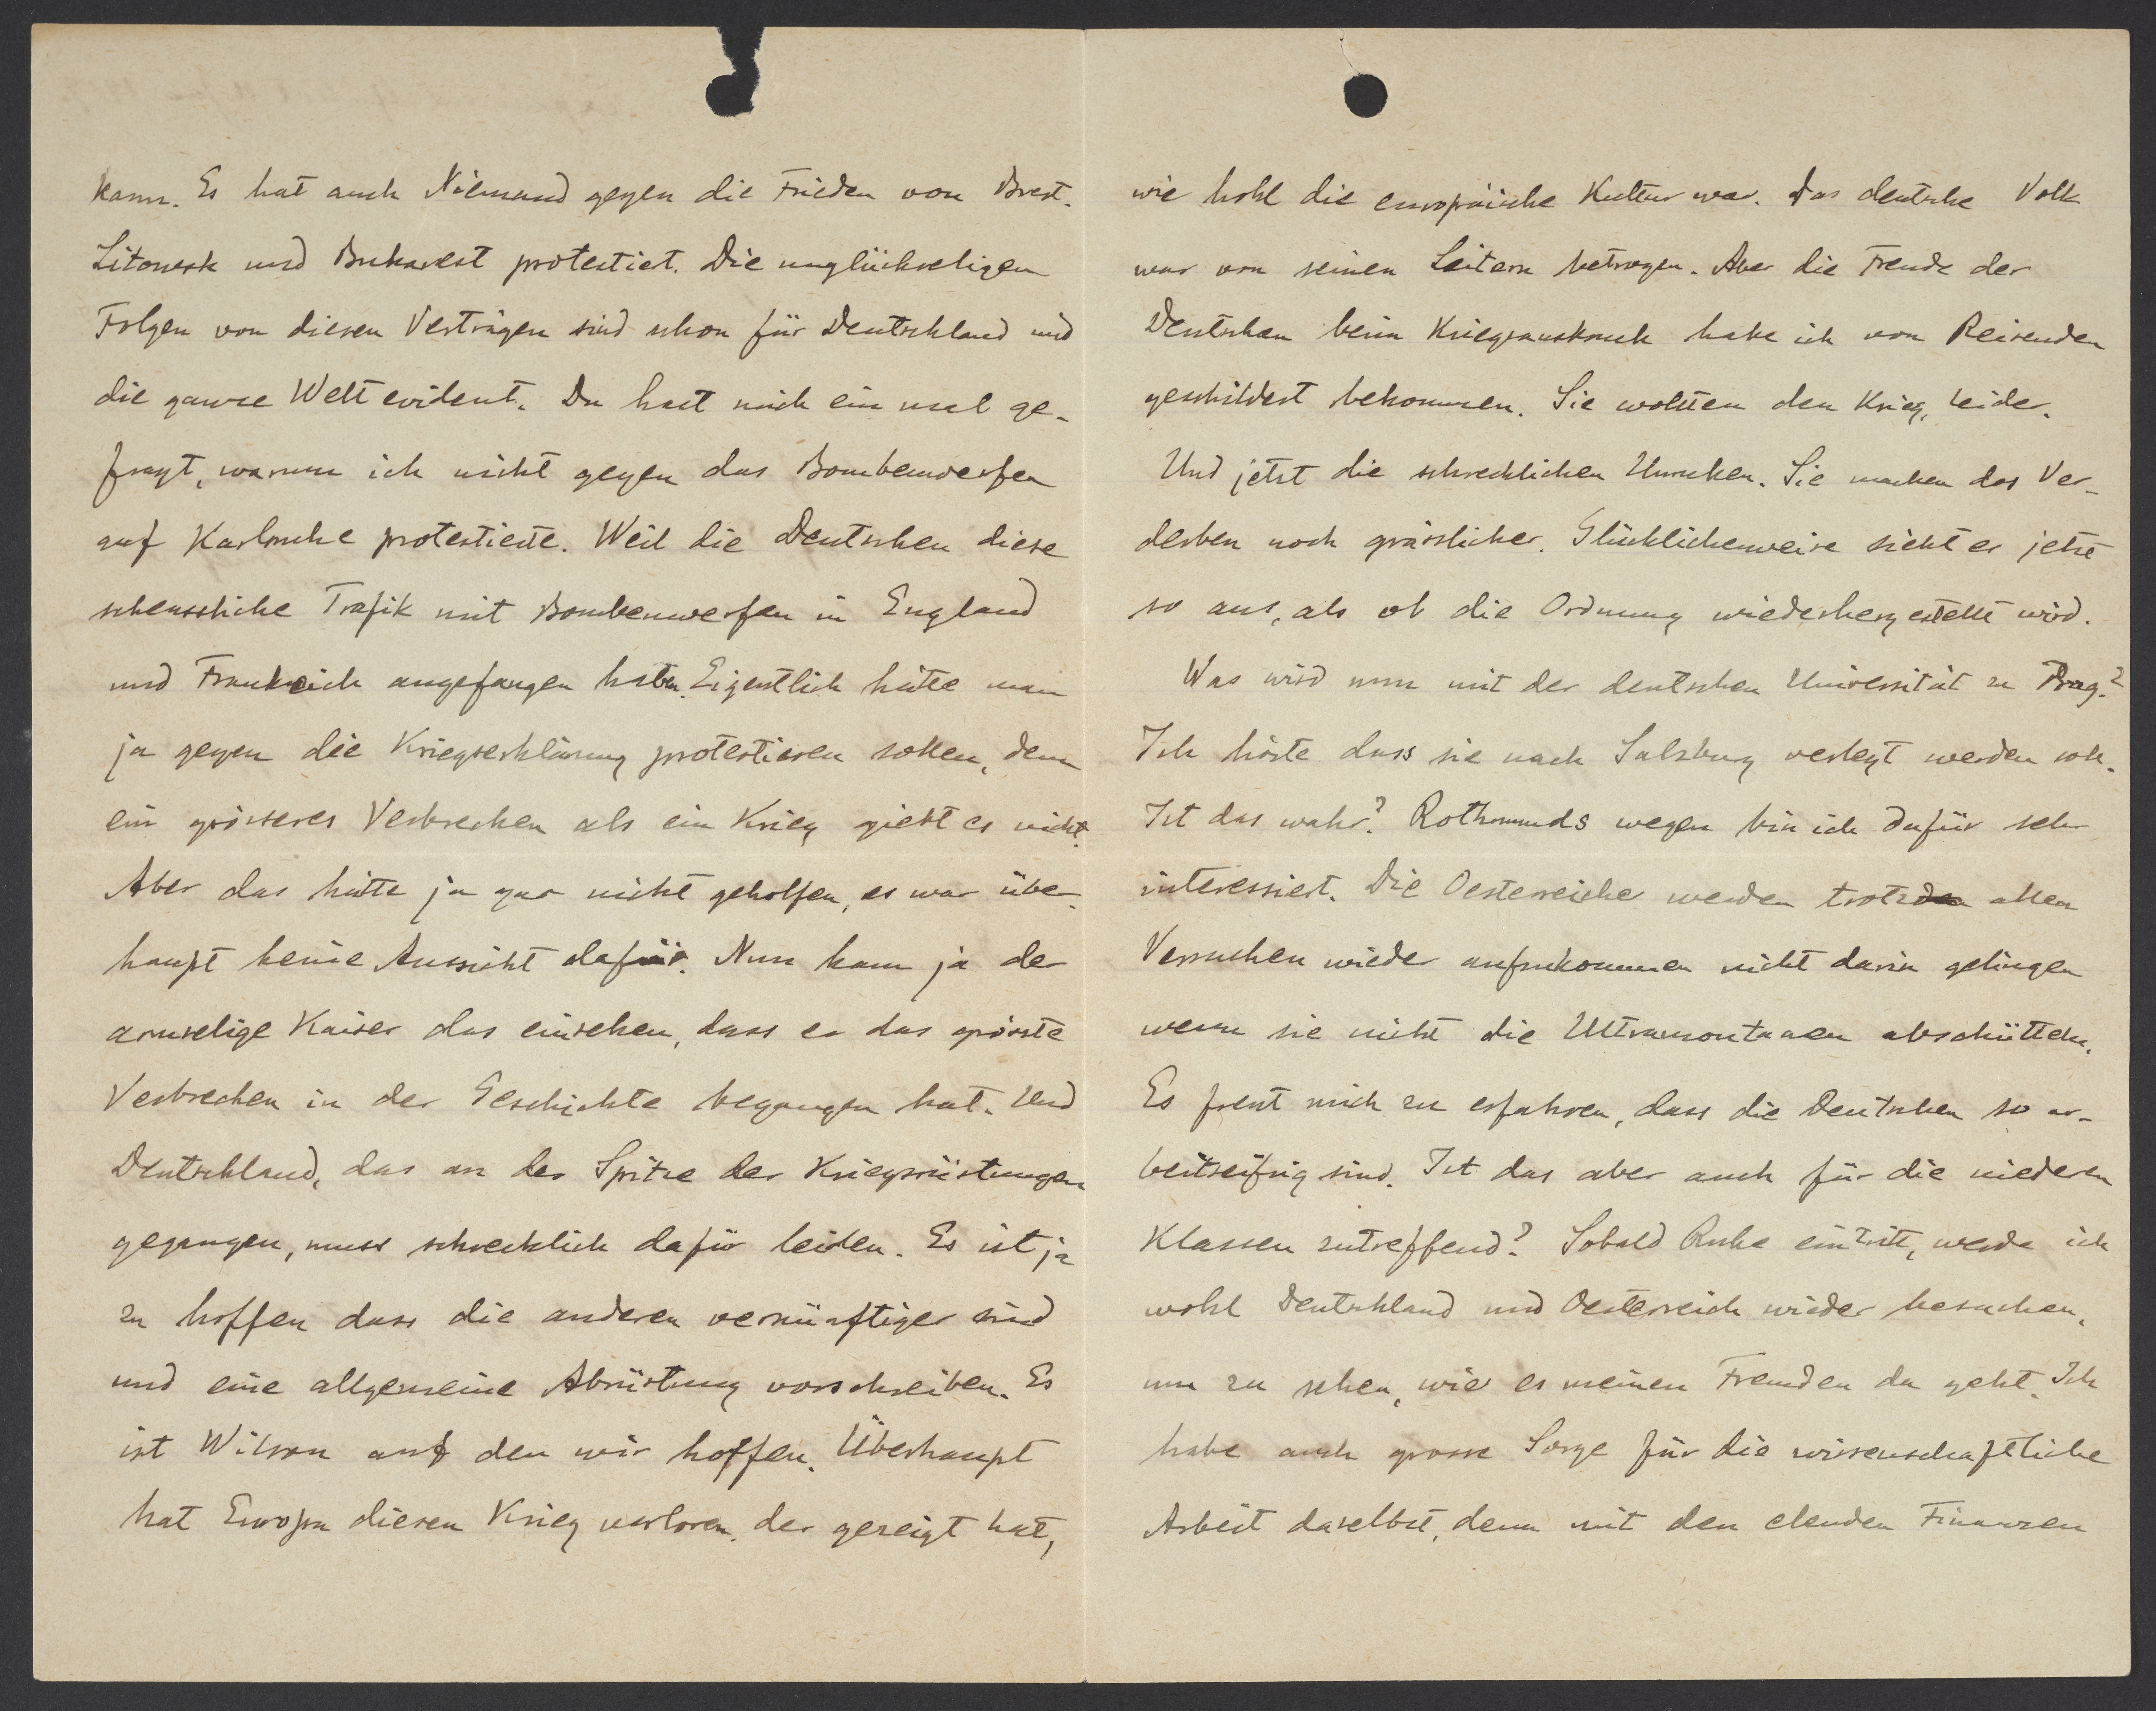 kann. Es hat auch Niemand gegen die Frieden von Brest-
Litowsk und Bukarest protestiert. Die unglückseligen
Folgen von diesen Verträgen sind schon für Deutschland und
die ganze Welt evident. Du hast mich ein mal ge-
fragt, warum ich nicht gegen das Bombenwerfen
auf Karlsruhe protestierte. Weil die Deutschen diese
scheussliche Trafik mit Bombenwerfen in England
und Frankreich angefangen haben. Eigentlich hätte man
ja gegen die Kriegserklärung protestieren sollen, denn
ein grösseres Verbrechen als ein Krieg giebt es nicht.
Aber das hätte ja gar nicht geholfen, es war über-
haupt keine Aussicht dafür. Nun kann ja der
armselige Kaiser das einsehen, dass er das grösste
Verbrechen in der Geschichte begangen hat. Und
Deutschland, das an der Spitze der Kriegsrüstungen
gegangen, muss schrecklich dafür leiden. Es ist ja
zu hoffen dass die anderen vernünftiger sind
und eine allgemeine Abrüstung vorschreiben. Es
ist Wilson auf den wir hoffen. Überhaupt
hat Europa diesen Krieg verloren, der gezeigt hat,
wie hohl die europäische Kultur war. Das deutsche Volk
war von seinen Leitern betrogen. Aber die Freude der
Deutschen beim Kriegsausbruch habe ich von Reisenden
geschildert bekommen. Sie wollten den Krieg, leider.
Und jetzt die schrecklichen Unruhen. Sie machen das Ver-
derben noch grässlicher. Glücklicherweise sieht es jetzt
so aus, als ob die Ordnung wiederhergestellt wird.
Was wird nun mit der deutschen Universität zu Prag?
Ich hörte dass sie nach Salzburg verlegt werden soll.
Ist das wahr? Rothmunds wegen bin ich dafür sehr
interessiert. Die Oesterreicher werden trotz allen
Versuchen wieder aufzukommen nicht darin gelingen
wenn sie nicht die Ultramontanen abschütteln.
Es freut mich zu erfahren, dass die Deutschen so ar-
beitseifrig sind. Ist das aber auch für die niederen
Klassen zutreffend? Sobald Ruhe eintritt, werde ich
wohl Deutschland und Oesterreich wieder besuchen,
um zu sehen, wie es meinen Freunden da geht. Ich
habe auch grosse Sorge für die wissenschaftliche
Arbeit daselbst, denn mit den elenden Finanzen